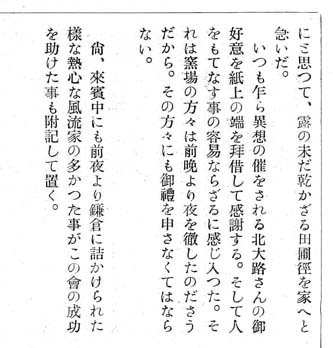 にと思つて、露の未だ乾かざる田圃徑を家へと
急いだ。
いつも乍ら異想の催をされる北大路さんの御
好意を紙上の端を拜借して感謝する。そして人
をもてなす事の容易ならざるに感じ入つた。そ
れは窯場の方々は前晚より夜を徹したのださう
だから。その方々にも御禮を申さなくてはなら
ない。
尙、來賓中にも前夜より鎌倉に詰かけられた
樣な熱心な風流家の多かつた事がこの會の成功
を助けた事も附記して置く。